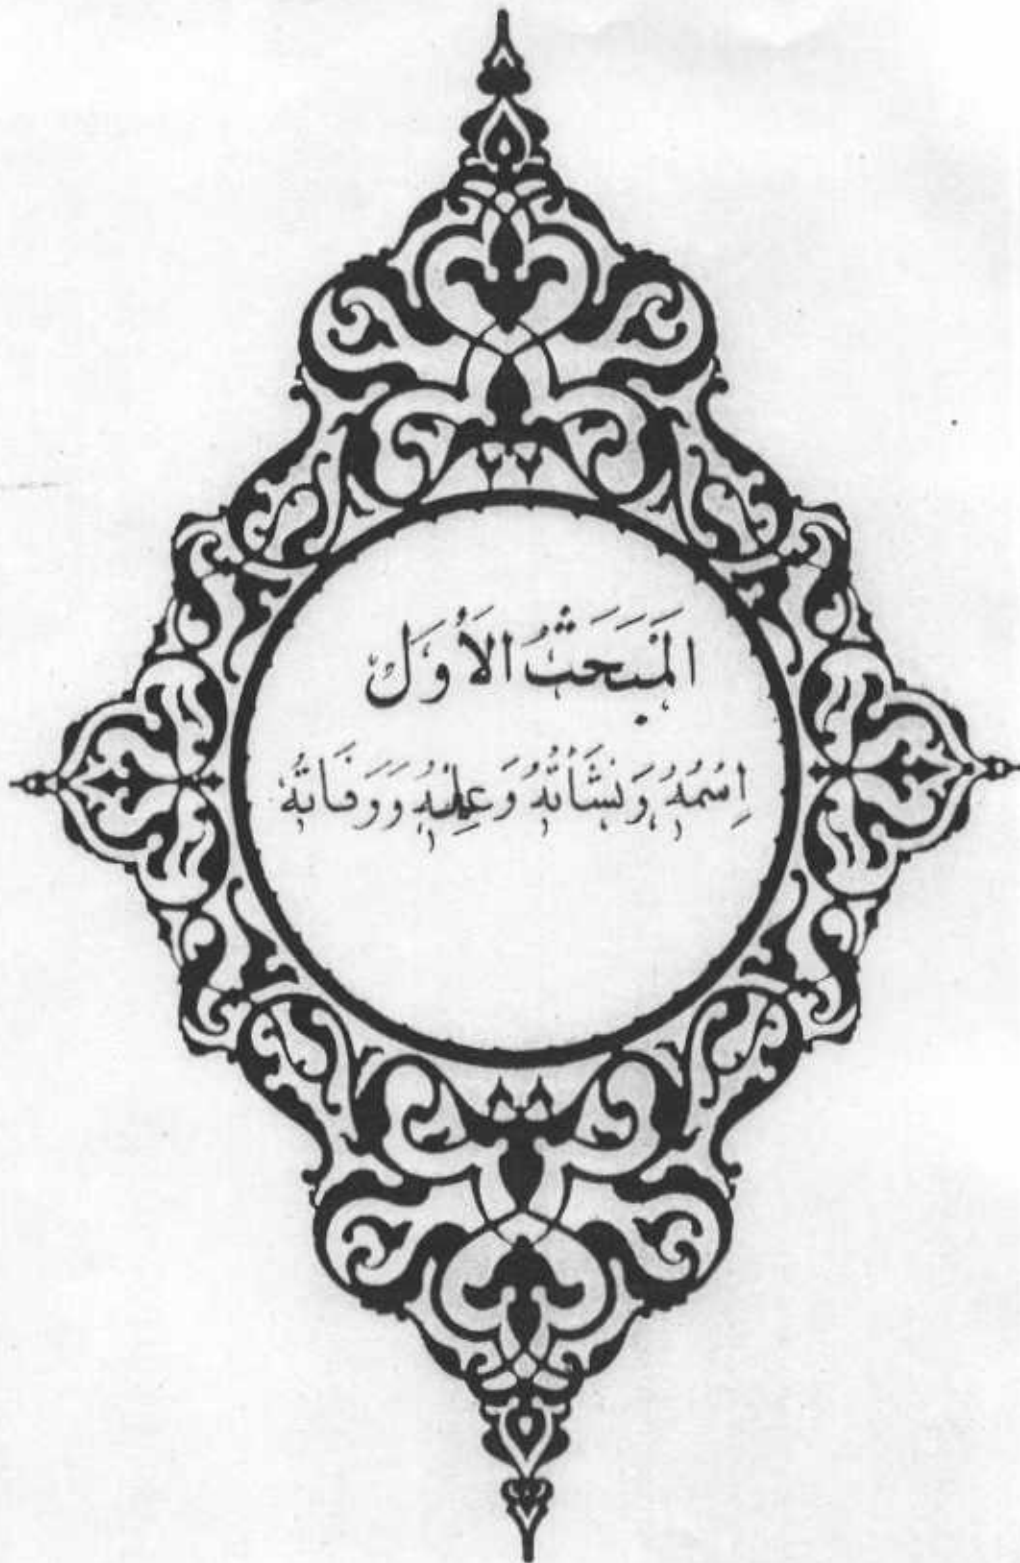 المَبْحَثُ الأَوَّل
اِسْمُهُ وَنَشْأَتُهُ وَعِلْمُهُ وَوَفَاتُهُ